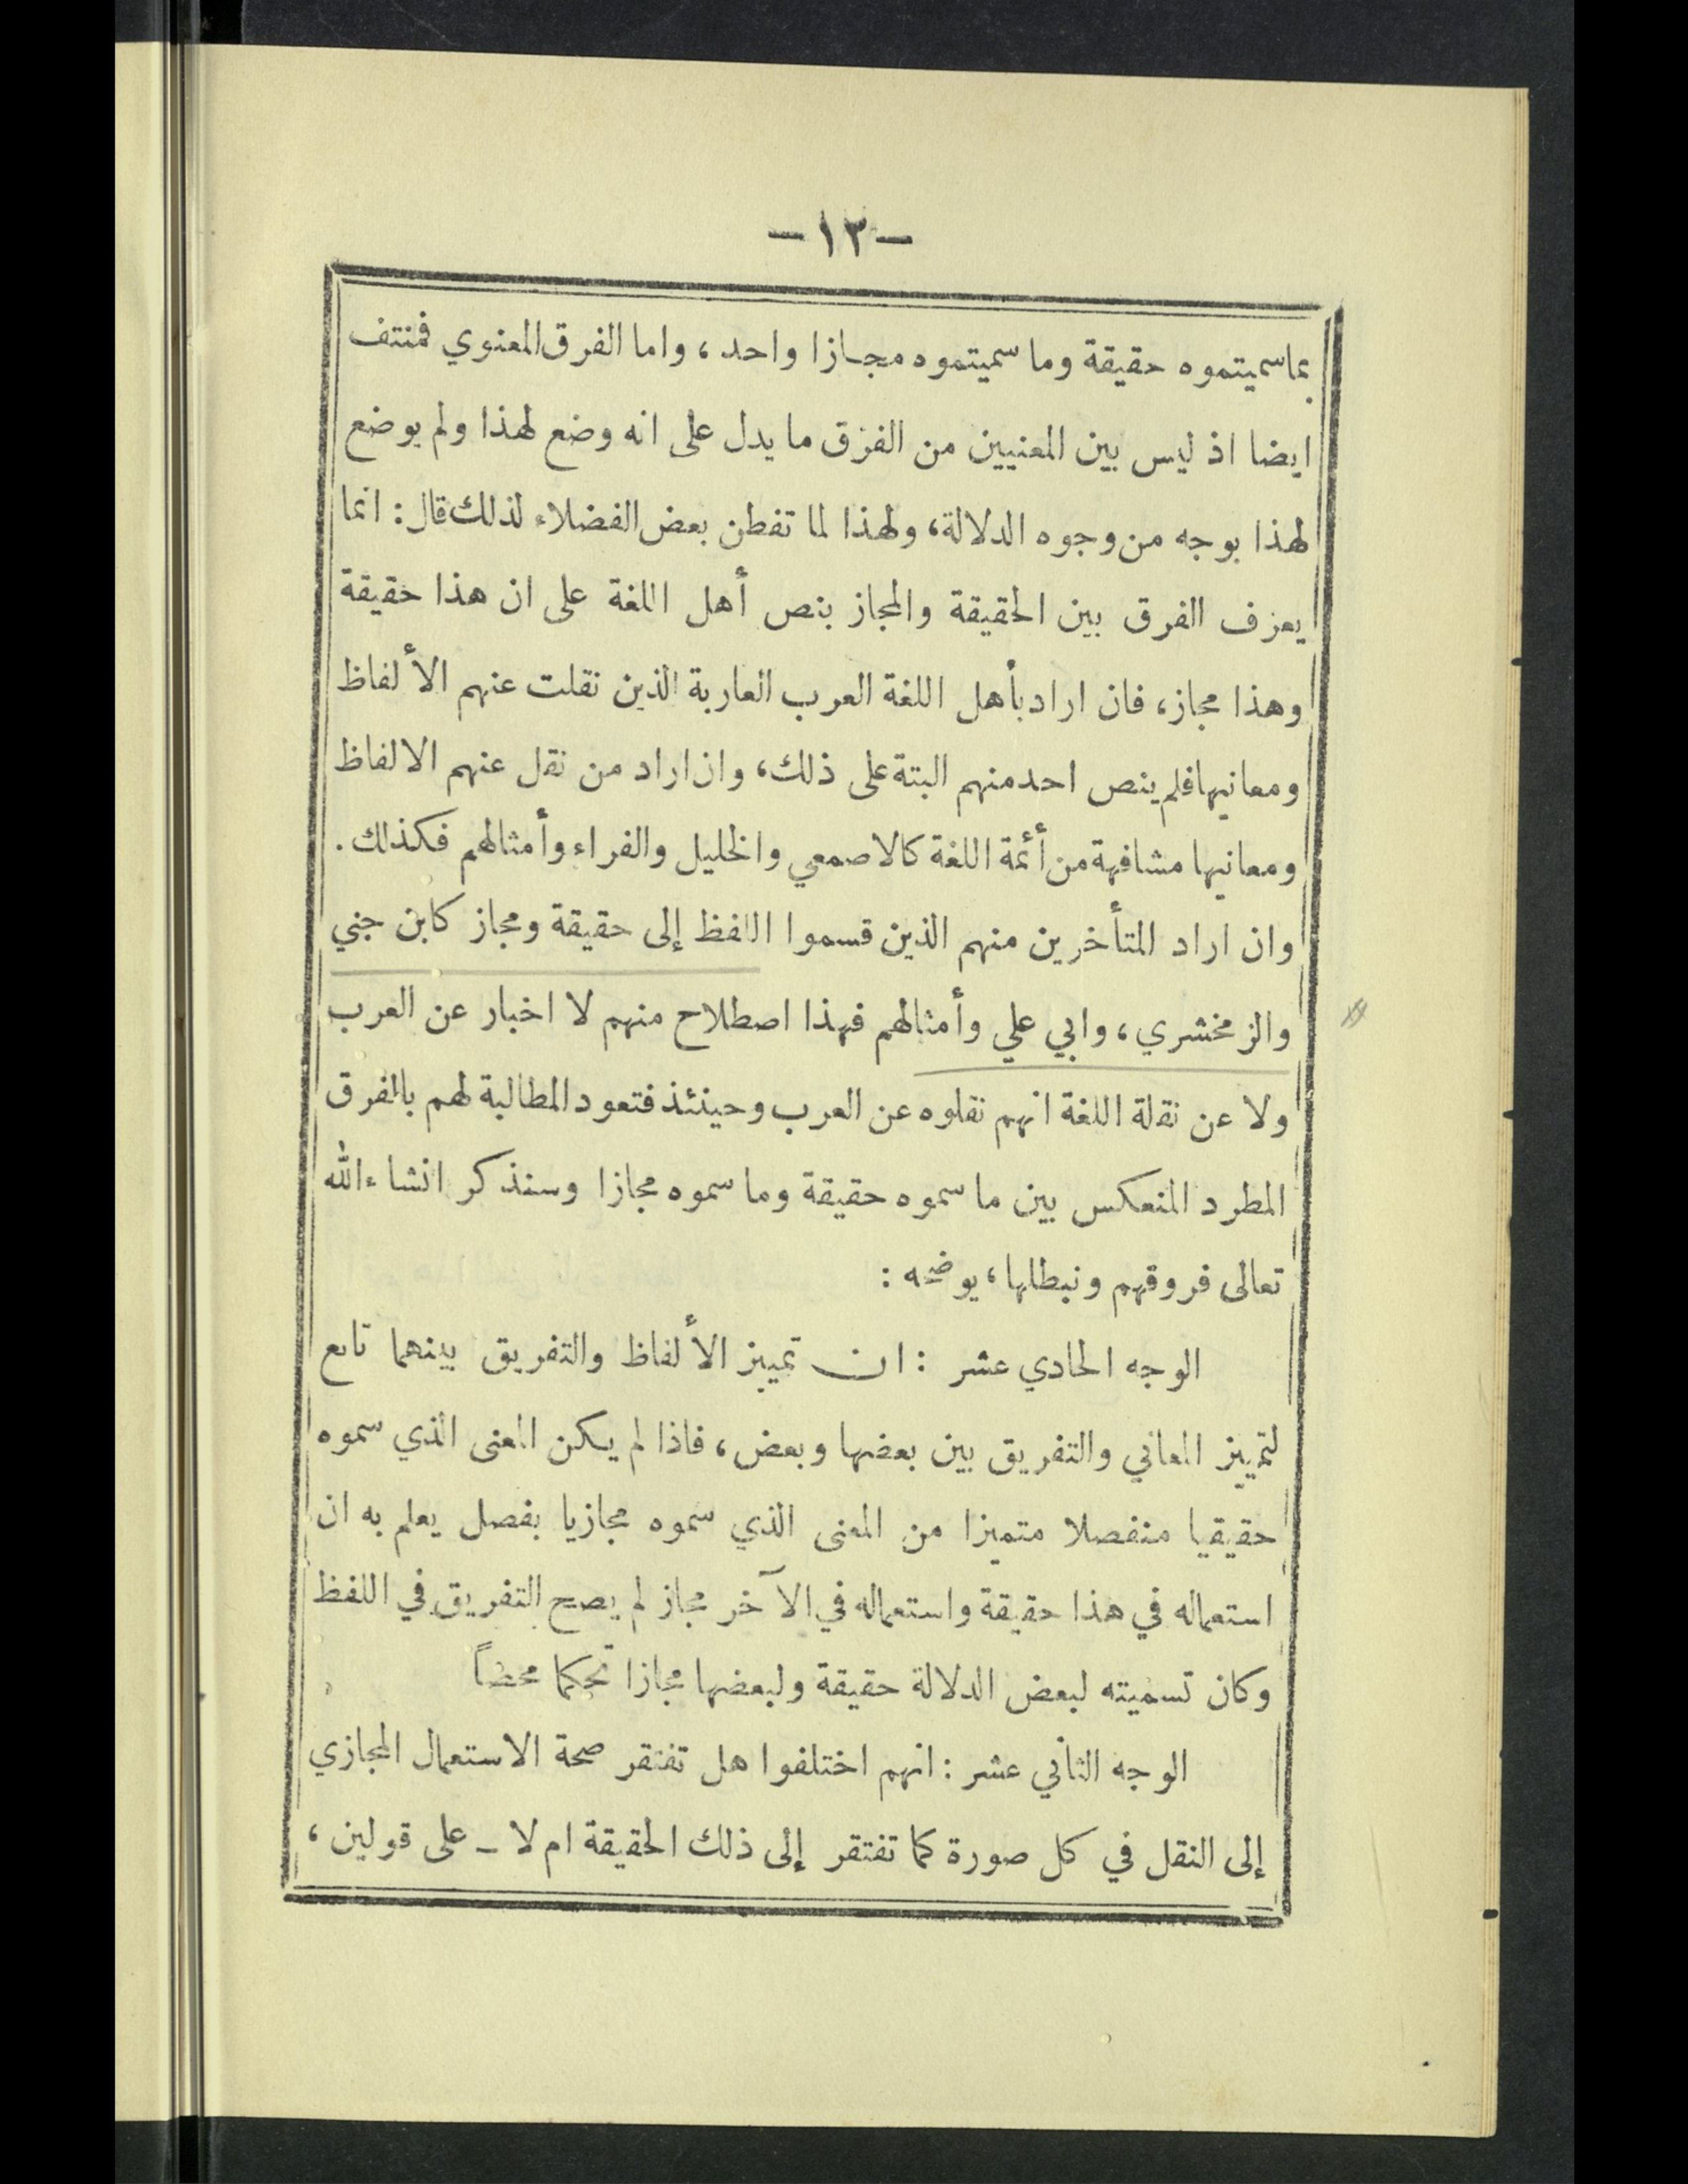 -١٣-
بما سميتموه حقيقة وما سميتموه مجازا واحد، واما الفرق المعنوي فمنتف
ايضا اذ ليس بين المعنيين من الفرق ما يدل على انه وضع لهذا ولم يوضع
لهذا بوجه من وجوه الدلالة، ولهذا لما تفطن بعض الفضلاء لذلك قال: انما
يعرف الفرق بين الحقيقة والمجاز بنص أهل اللغة على ان هذا حقيقة
وهذا مجاز، فان اراد بأهل اللغة العرب العاربة الذين نقلت عنهم الألفاظ
ومعانيها فلم ينص احد منهم البتة على ذلك، وان اراد من نقل عنهم الالفاظ
ومعانيها مشافهة من أئمة اللغة كالاصمعي والخليل والفراء وأمثالهم فكذلك.
وان اراد المتأخرين منهم الذين قسموا اللفظ إلى حقيقة ومجاز كابن جني
والزمخشري، وابي علي وأمثالهم فهذا اصطلاح منهم لا اخبار عن العرب
ولا عن نقلة اللغة انهم نقلوه عن العرب وحينئذ فتعود المطالبة لهم بالفرق
المطرد المنعكس بين ما سموه حقيقة وما سموه مجازا وسنذكر انشاء الله
تعالى فروقهم ونبطلها، يوضحه :
الوجه الحادي عشر : ان تمييز الألفاظ والتفريق بينهما تابع
لتمييز المعاني والتفريق بين بعضها وبعض، فاذا لم يكن المعنى الذي سموه
حقيقيا منفصلا متميزا من المعنى الذي سموه مجازيا بفصل يعلم به ان
استعماله في هذا حقيقة واستعماله في الآخر مجاز لم يصح التفريق في اللفظ
وكان تسميته لبعض الدلالة حقيقة ولبعضها مجازا تحكما محضاً
الوجه الثاني عشر : انهم اختلفوا هل تفتقر صحة الاستعمال المجازي
إلى النقل في كل صورة كما تفتقر إلى ذلك الحقيقة ام لا ـ على قولين ،